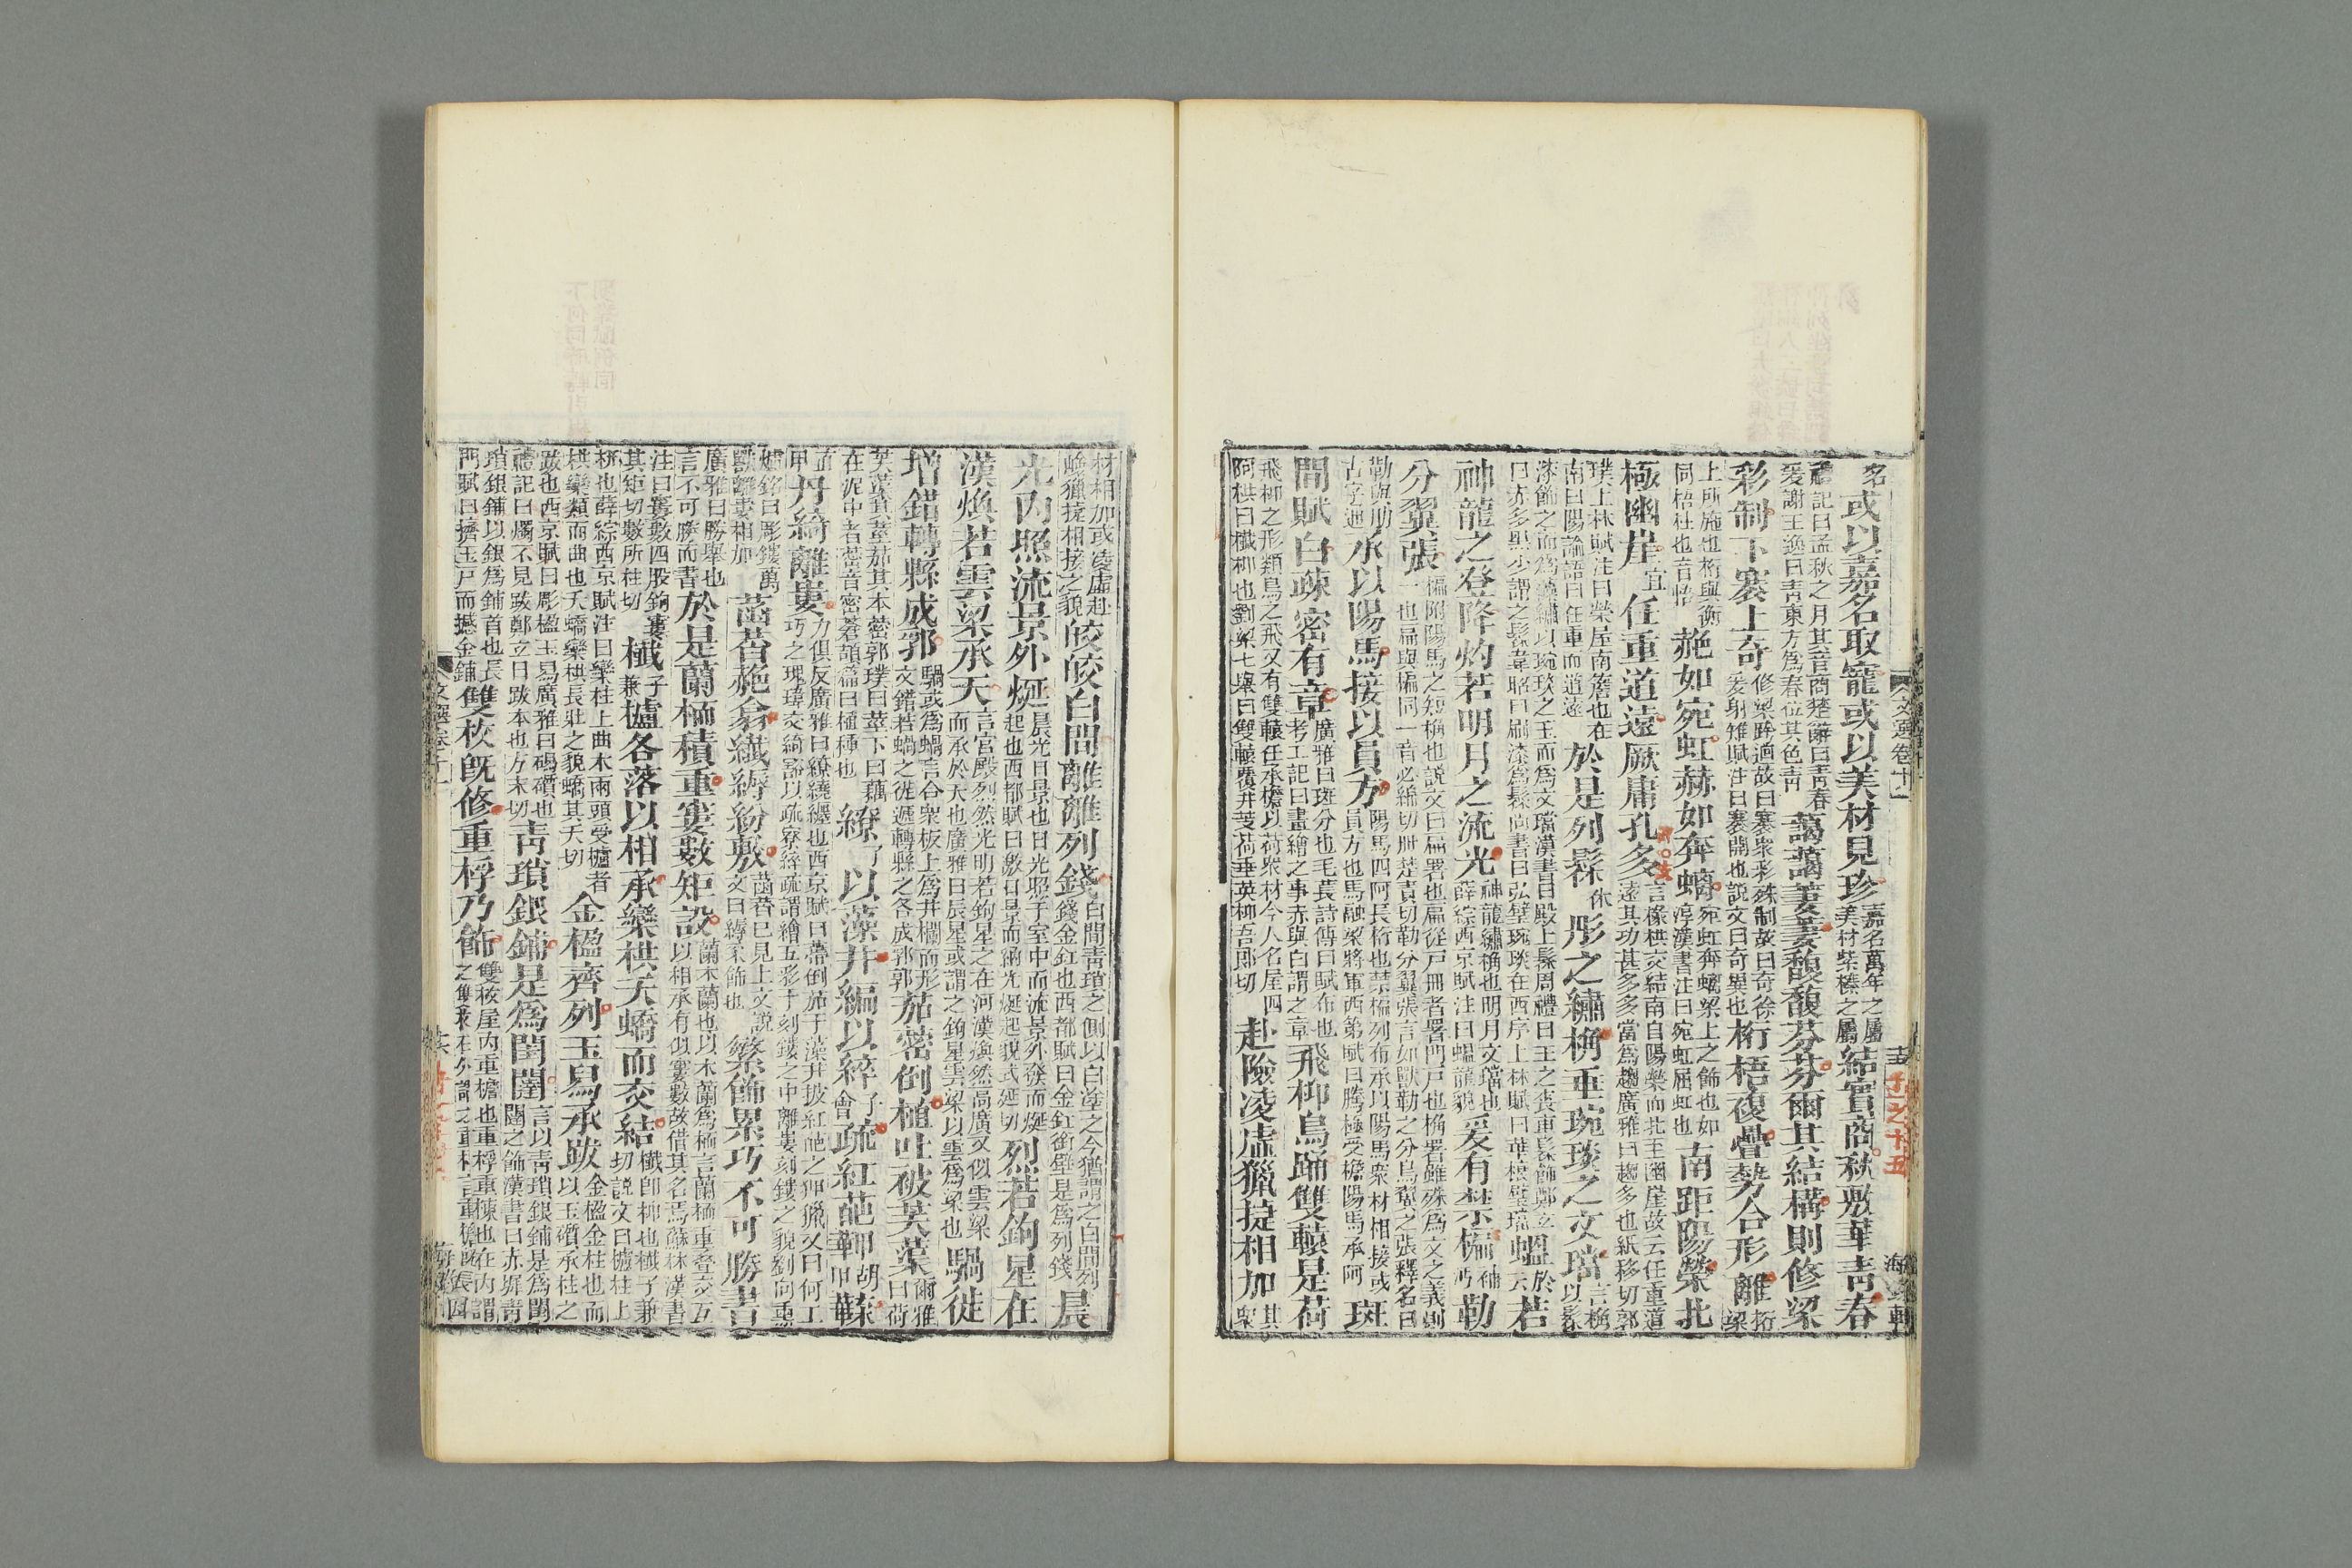 名或以嘉名取寵或以美材見珍嘉名萬年之屬美材柴榛之屬結實商秋敷華青春
禮記曰孟秋之月其音商楚辭曰青春爰謝王逸曰青東方爲春位其色青藹藹萋萋馥馥芬芬爾其結構則修梁
彩制下褰上奇修梁跨迥故曰褰衆彩殊制故曰奇徐爰射雉賦注曰褰開也說文曰奇異也桁梧複疊勢合形離桁梁
上所施也桁與衡同梧柱也音悟赩如宛虹赫如奔螭宛虹奔螭梁上之飾也如淳漢書注曰宛虹屈虹也南距陽榮北
極幽崖宜任重道遠厥庸孔多言椽栱交結南自陽榮而北至幽崖故云任重道遠其功甚多多當爲趨廣雅曰趨多也紙移切郭
璞上林賦注曰榮屋南簷也在南曰陽論語曰任重而道遠於是列髹休彤之繡桷垂琬琰之文璫言桷以髹
漆飾之而爲藻繡以琬琰之玉而爲文璫漢書曰殿上髹周禮曰王之喪車髹飾鄭玄曰赤多黑少謂之髹韋昭曰刷漆爲髹尚書曰弘璧琬琰在西序上林賦曰華榱璧璫蝹於云若
神龍之登降灼若明月之流光神龍繡桷也明月文璫也薛綜西京賦注曰蝹龍貌爰有禁楄勒
分翼張楄附陽馬之短桷也說文曰扁署也扁從戶冊者署門戶也桷署雖殊爲文之義則一也扁與楄同一音必綿切勒分翼張言如獸勒之分鳥翼之張釋名曰
勒與肋古字通承以陽馬接以員方陽馬四阿長桁也禁楄列布承以陽馬衆材相接或員方也馬融梁將軍西第賦曰騰極受檐陽馬承阿斑
間賦白疎密有章廣雅曰斑分也毛萇詩傳曰賦布也考工記曰畫繪之事赤與白謂之章飛枊鳥踊雙轅是荷
飛枊之形類鳥之飛又有雙轅任承檐以荷衆材今人名屋四阿栱曰櫼枊也劉梁七舉曰雙轅覆井芰荷垂英枊吾郎切赴險凌虛獵捷相加其衆
材相加或凌虛赴嶮獵捷相接之貌皎皎白間離離列錢白間青瑣之側以白塗之今猶謂之白間列錢金釭也西都賦曰金釭銜壁是爲列錢晨
光內照流景外烻晨光日景也日光照于室中而流景外發而烻起也西都賦曰激日景而納光烻起貌式延切烈若鉤星在
漢煥若雲梁承天言宮殿烈然光明若鉤星之在河漢煥然高廣又似雲梁而承於天也廣雅曰辰星或謂之鉤星雲梁以雲爲梁也騧徙
增錯轉縣成郭騧或爲蝸言合衆板上爲井欄而形文錯若蝸之徙遞轉縣之各成郭郭茄蔤倒植吐被芙蕖爾雅曰荷
芙蕖其莖茄其本蔤郭璞曰莖下白蒻在泥中者蔤音密蒼頡篇曰植種也繚了以藻井編以綷子會疏紅葩䪴胡甲𩏽
丹綺離婁力俱反廣雅曰繚繞纏也西京賦曰蔕倒茄于藻井披紅葩之狎獵又曰何工巧之瑰瑋交綺豁以疏寮綷疏謂繪五彩于刻鏤之中離婁刻鏤之貌劉向熏
爐銘曰彫鏤萬獸離婁相加菡萏赩翕纖縟紛敷菡萏已見上文說文曰縟采飾也繁飾累巧不可勝書
廣雅曰勝舉也言不可勝而書於是蘭栭積重窶數矩設蘭木蘭也以木蘭爲栭言蘭栭重疊交互以相承有似窶數故借其名焉蘇林漢書
注曰窶數四股鉤其矩切數所柱切櫼子兼櫨各落以相承欒栱夭蟜而交結櫼卽枊也櫼子兼切說文曰櫨柱上
枅也薛綜西京賦注曰欒柱上曲木兩頭受櫨者栱欒類而曲也夭蟜欒栱長壯之貌蟜其夭切金楹齊列玉舄承跋金楹金柱也而以玉礩承柱之
跋也西京賦曰彫楹玉舄廣雅曰碣礩也禮記曰燭不見跋鄭玄曰跋本也方末切青瑣銀鋪是爲閨闥言以青瑣銀鋪是爲閨闥之飾漢書曰赤墀青
瑣銀鋪以銀爲鋪首也長門賦曰擠玉戶而撼金鋪雙枚旣修重桴乃飾雙枚屋內重檐也重桴重棟也在內謂之雙枚在外謂之重桴言重檐旣長因
文選卷十一
十五
海錄軒
十一之十五